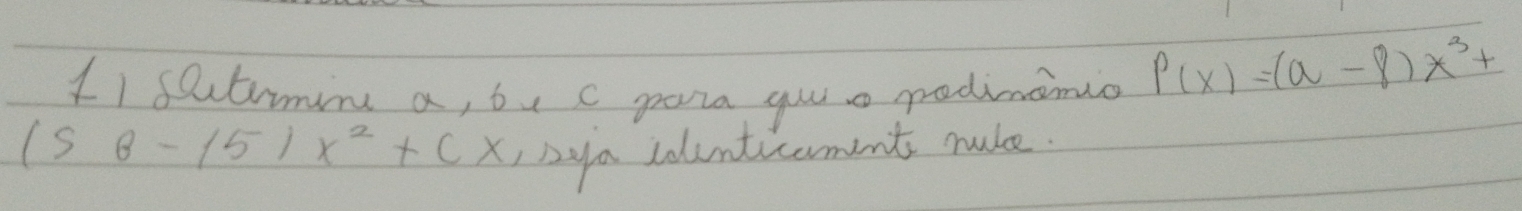 1) Determine a, b e c para que o podinâmio P(x) = (a - 8) x³ +
(5 b - 15) x² + C x, seja identicamente nulo.